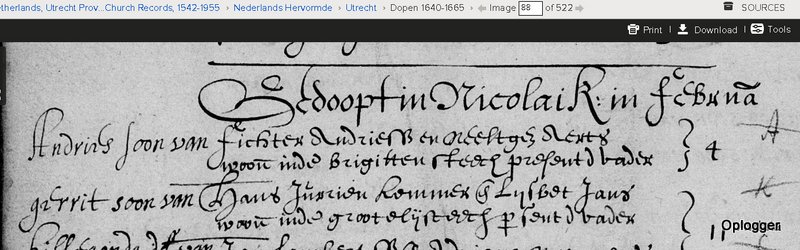 etherlands, Utrecht Prov...Church Records, 1542-1955 › Nederlands Hervormde › Utrecht › Dopen 1640-1665 › Image 88 of 522 SOURCES
Print | Download | Tools
Gedoopt in Nicolai K: in Febrūa
Andries soon van Eichter Andriess en Neeltgē Aerts
woon inde Brigitten steech present d vader 4
gerrit soon van Hans Jurrien Kommer & Lysbet Jans
woon inde groote lysteech p sent d vader
Oplogger